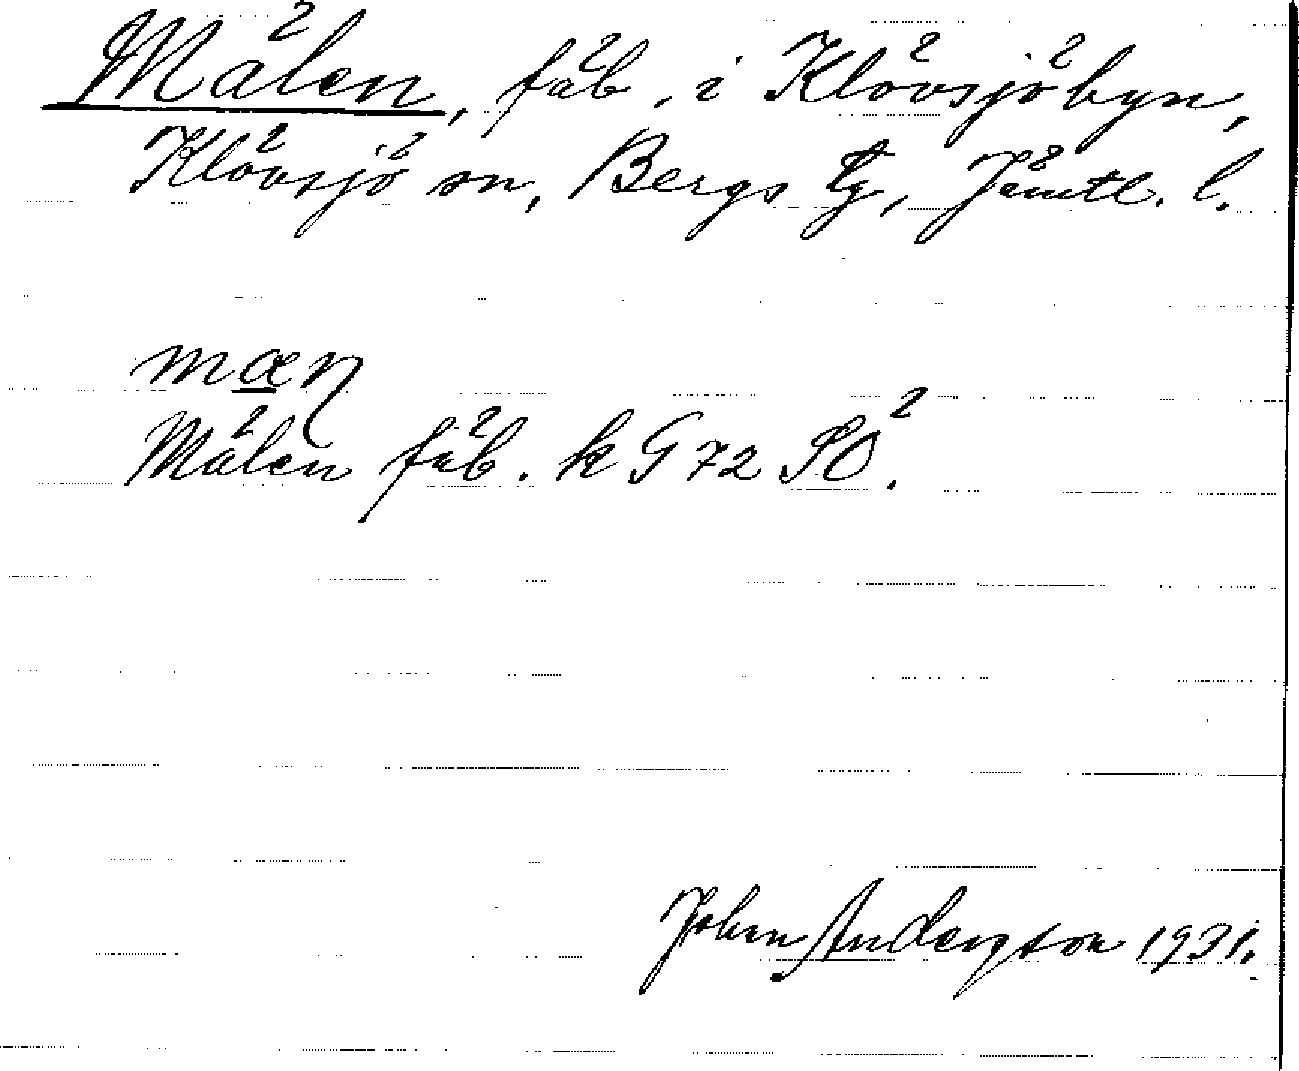 Mälen, fäb. i Klövsjöbyn,
Klövsjö sn, Bergs tg, Jämtl. l.
mæn
Mälen fäb. k G 72 SO.
John Anderson 1931.